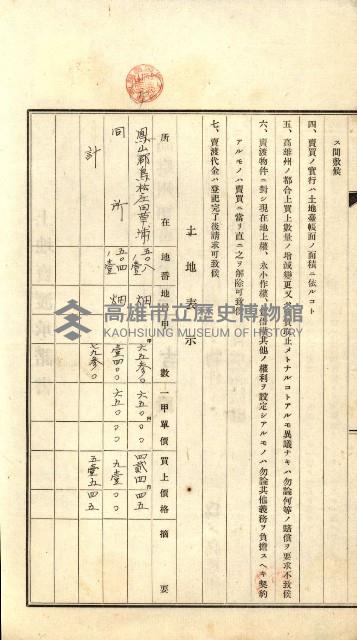 ス間敷候
四、賣買ノ實行ハ土地臺帳面ノ面積ニ依ルコト
五、高雄州ノ都合上買上數量ノ增減變更又ハ賣買中止メトナルコトアルモ異議ナキハ勿論何等ノ賠償ヲ要求不致候
六、賣渡物件ニ對シ現在地上權、永小作權、賃借權其他ノ權利ヲ設定シアルモノハ勿論其他義務ヲ負擔スヘキ契約
アルモノハ賣買ニ當リ直ニ之ヲ解除可致候
七、賣渡代金ハ登記完了後請求可致候
土地表示
所在 地番 地目 甲數 一甲單價 買上價格 摘要
鳳山郡鳥松庄田草埔 五〇八ノ壹 畑 六五參〇 六五〇〇〇 四貳四四五
同所 五〇四ノ壹 畑 壹四〇〇 六五〇〇〇 九壹〇〇
計 七九參〇 五壹五四五
高雄市立歷史博物館
KAOHSIUNG MUSEUM OF HISTORY